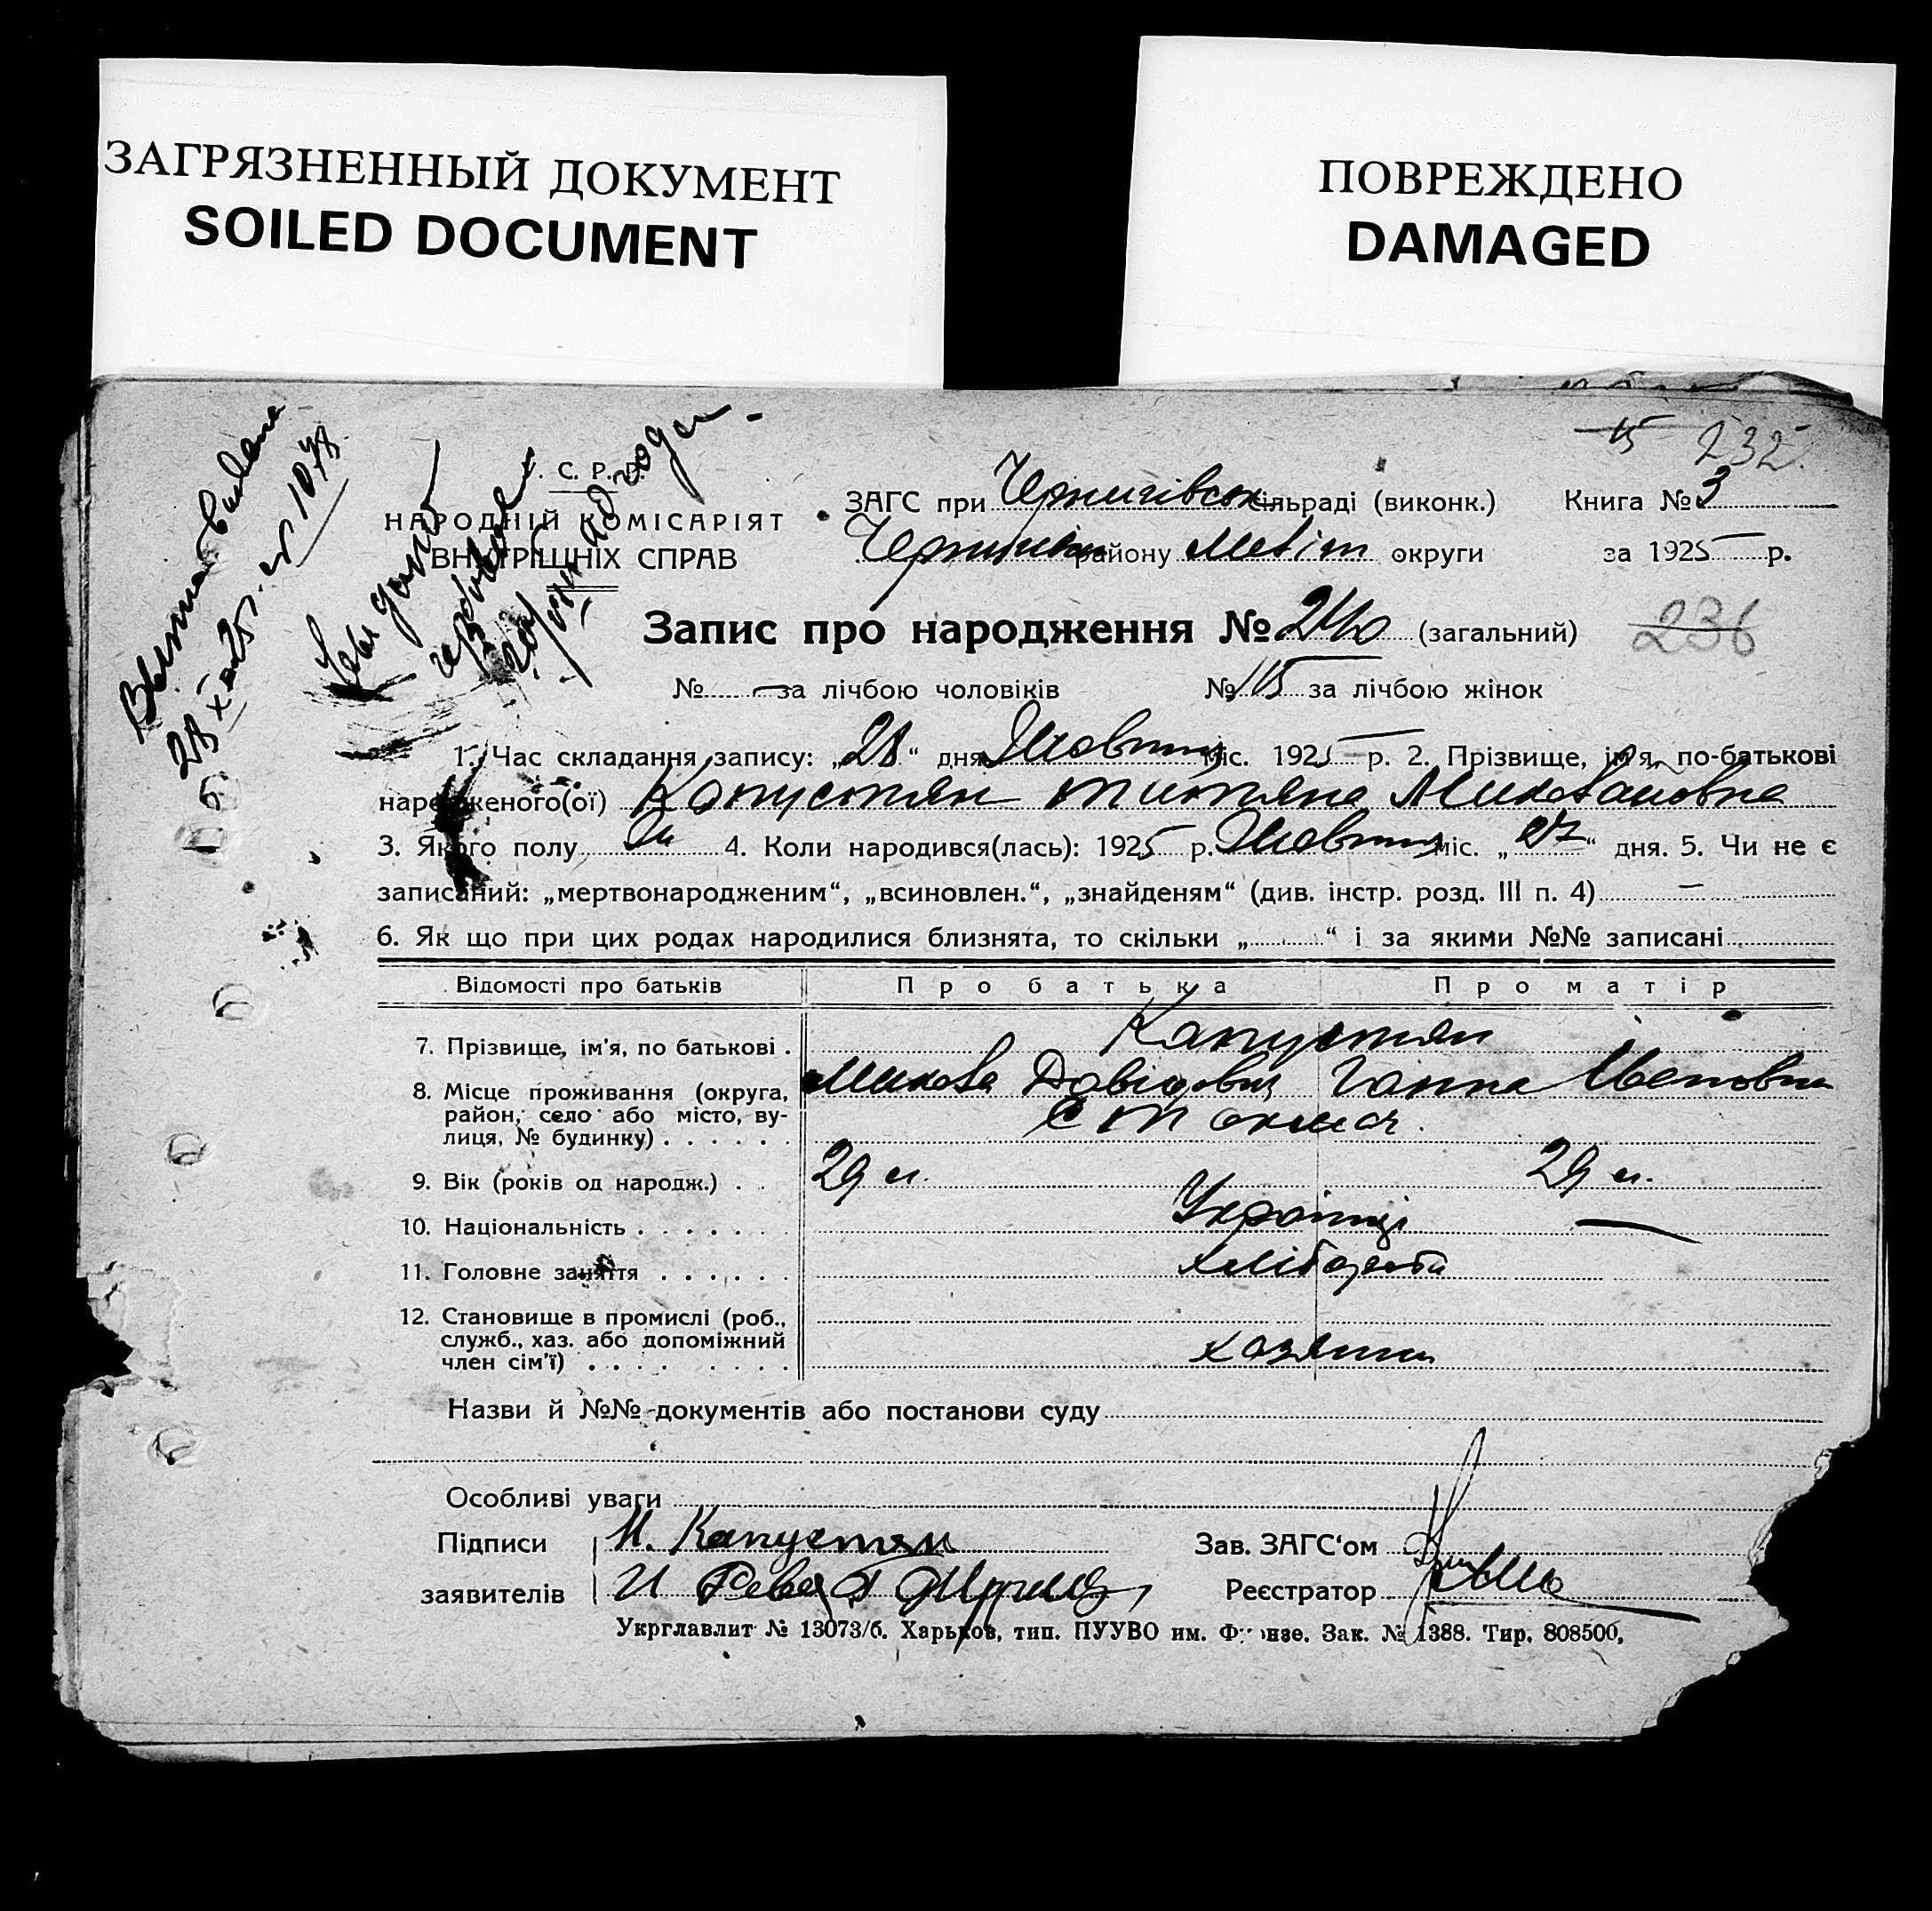 ЗАГРЯЗНЕННЫЙ ДОКУМЕНТ
SOILED DOCUMENT
ПОВРЕЖДЕНО
DAMAGED
232
С. Р. Р.
НАРОДНІЙ КОМІСАРІЯТ
ВНУТРІШНІХ СПРАВ
ЗАГС при Чернигівськ сільраді (виконк.) Книга № 3
району Меліт округи за 1925 р.
Запис про народження № 240 (загальний) 236
№ — за лічбою чоловіків № 115 за лічбою жінок
1. Час складання запису: „28“ дня Жовтня міс. 1925 р. 2. Прізвище, ім'я, по-батькові
народженого(ої) Капустян Титяна
3. Якого полу Ж 4. Коли народився(лась): 1925 р. Жовтня міс. „27“ дня. 5. Чи не є
записаний: „мертвонародженим“, „всиновлен.“, „знайденям“ (див. інстр. розд. III п. 4) —
6. Як що при цих родах народилися близнята, то скільки „ “ і за якими №№ записані
Відомості про батьків Про батька Про матір
7. Прізвище, ім'я, по батькові . Капустян
8. Місце проживання (округа, Давідович Ганна
район, село або місто, ву-
лиця, № будинку) . . . . . .
9. Вік (років од народж.) . . 29 л. 29 л.
10. Національність . . . . . . . Українці —
11. Головне заняття . . . . . . хлібороби
12. Становище в промислі (роб.,
служб., хаз. або допоміжний
член сім'ї) . . . . . . . . . хазяин
Назви й №№ документів або постанови суду
Особливі уваги
Підписи Н. Капустян Зав. ЗАГС‘ом
заявителів Реєстратор
Укрглавлит № 13073/б. Харьков, тип. ПУУВО им. Фрунзе. Зак. № 1388. Тир. 808500,